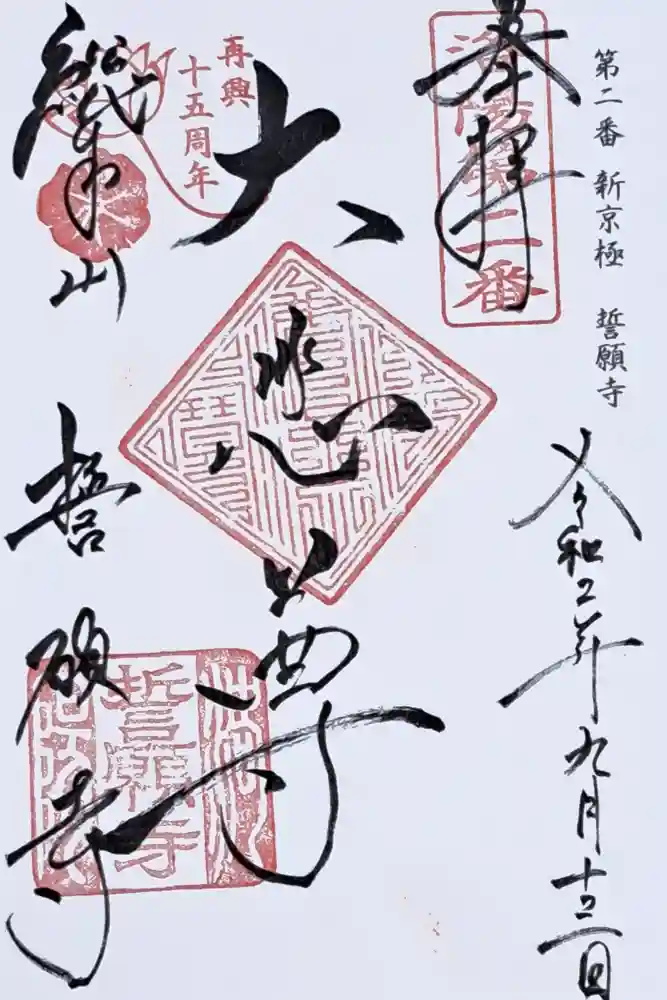 第二番 新京極 誓願寺
奉拝
洛陽第二番
令和2年九月十三日
大悲尊
再興
十五周年
山
誓願寺
誓願寺